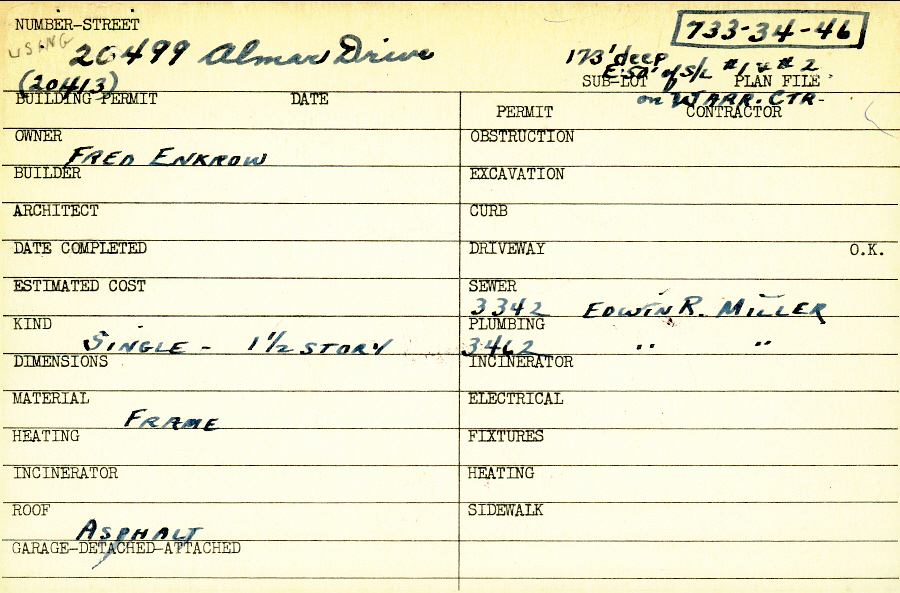 NUMBER-STREET
733-34-46
USING 20499 Almar Drive
173' deep
(20413)
E. 50' of S/L #1 & #2
SUB-LOT PLAN FILE
on WARR. CTR.
BUILDING PERMIT DATE
PERMIT CONTRACTOR
OWNER FRED ENKROW
OBSTRUCTION
BUILDER
EXCAVATION
ARCHITECT
CURB
DATE COMPLETED
DRIVEWAY O.K.
ESTIMATED COST
SEWER
3342 EDWIN R. MILLER
KIND SINGLE - 1 1/2 STORY
PLUMBING
3462 " "
DIMENSIONS
INCINERATOR
MATERIAL FRAME
ELECTRICAL
HEATING
FIXTURES
INCINERATOR
HEATING
ROOF ASPHALT
SIDEWALK
GARAGE-DETACHED-ATTACHED